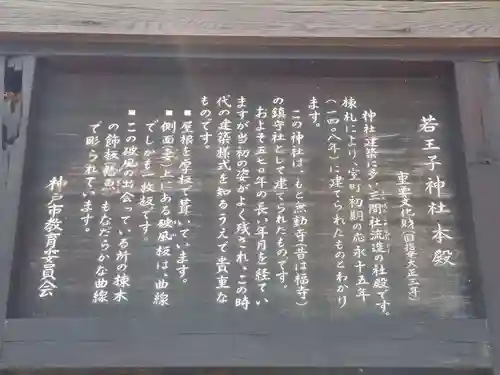 若王子神社本殿
重要文化財(国指定大正三年)
神社建築に多い三間社流造の社殿です。
棟札により、室町初期の応永十五年
(一四〇八年)に建てられたものとわかり
ます。
この神社は、もと無動寺(昔は福寺)
の鎮守社として建てられたものです。
およそ五七〇年の長い年月を経てい
ますが当初の姿がよく残され、この時
代の建築様式を知るうえで貴重な
ものです。
■屋根を厚板で葺いています。
■側面(妻)の上にある破風板は、曲線
でしかも一枚板です。
■この破風の出会っている所の棟木
の飾板(懸魚)もなだらかな曲線
で彫られています。
神戸市教育委員会